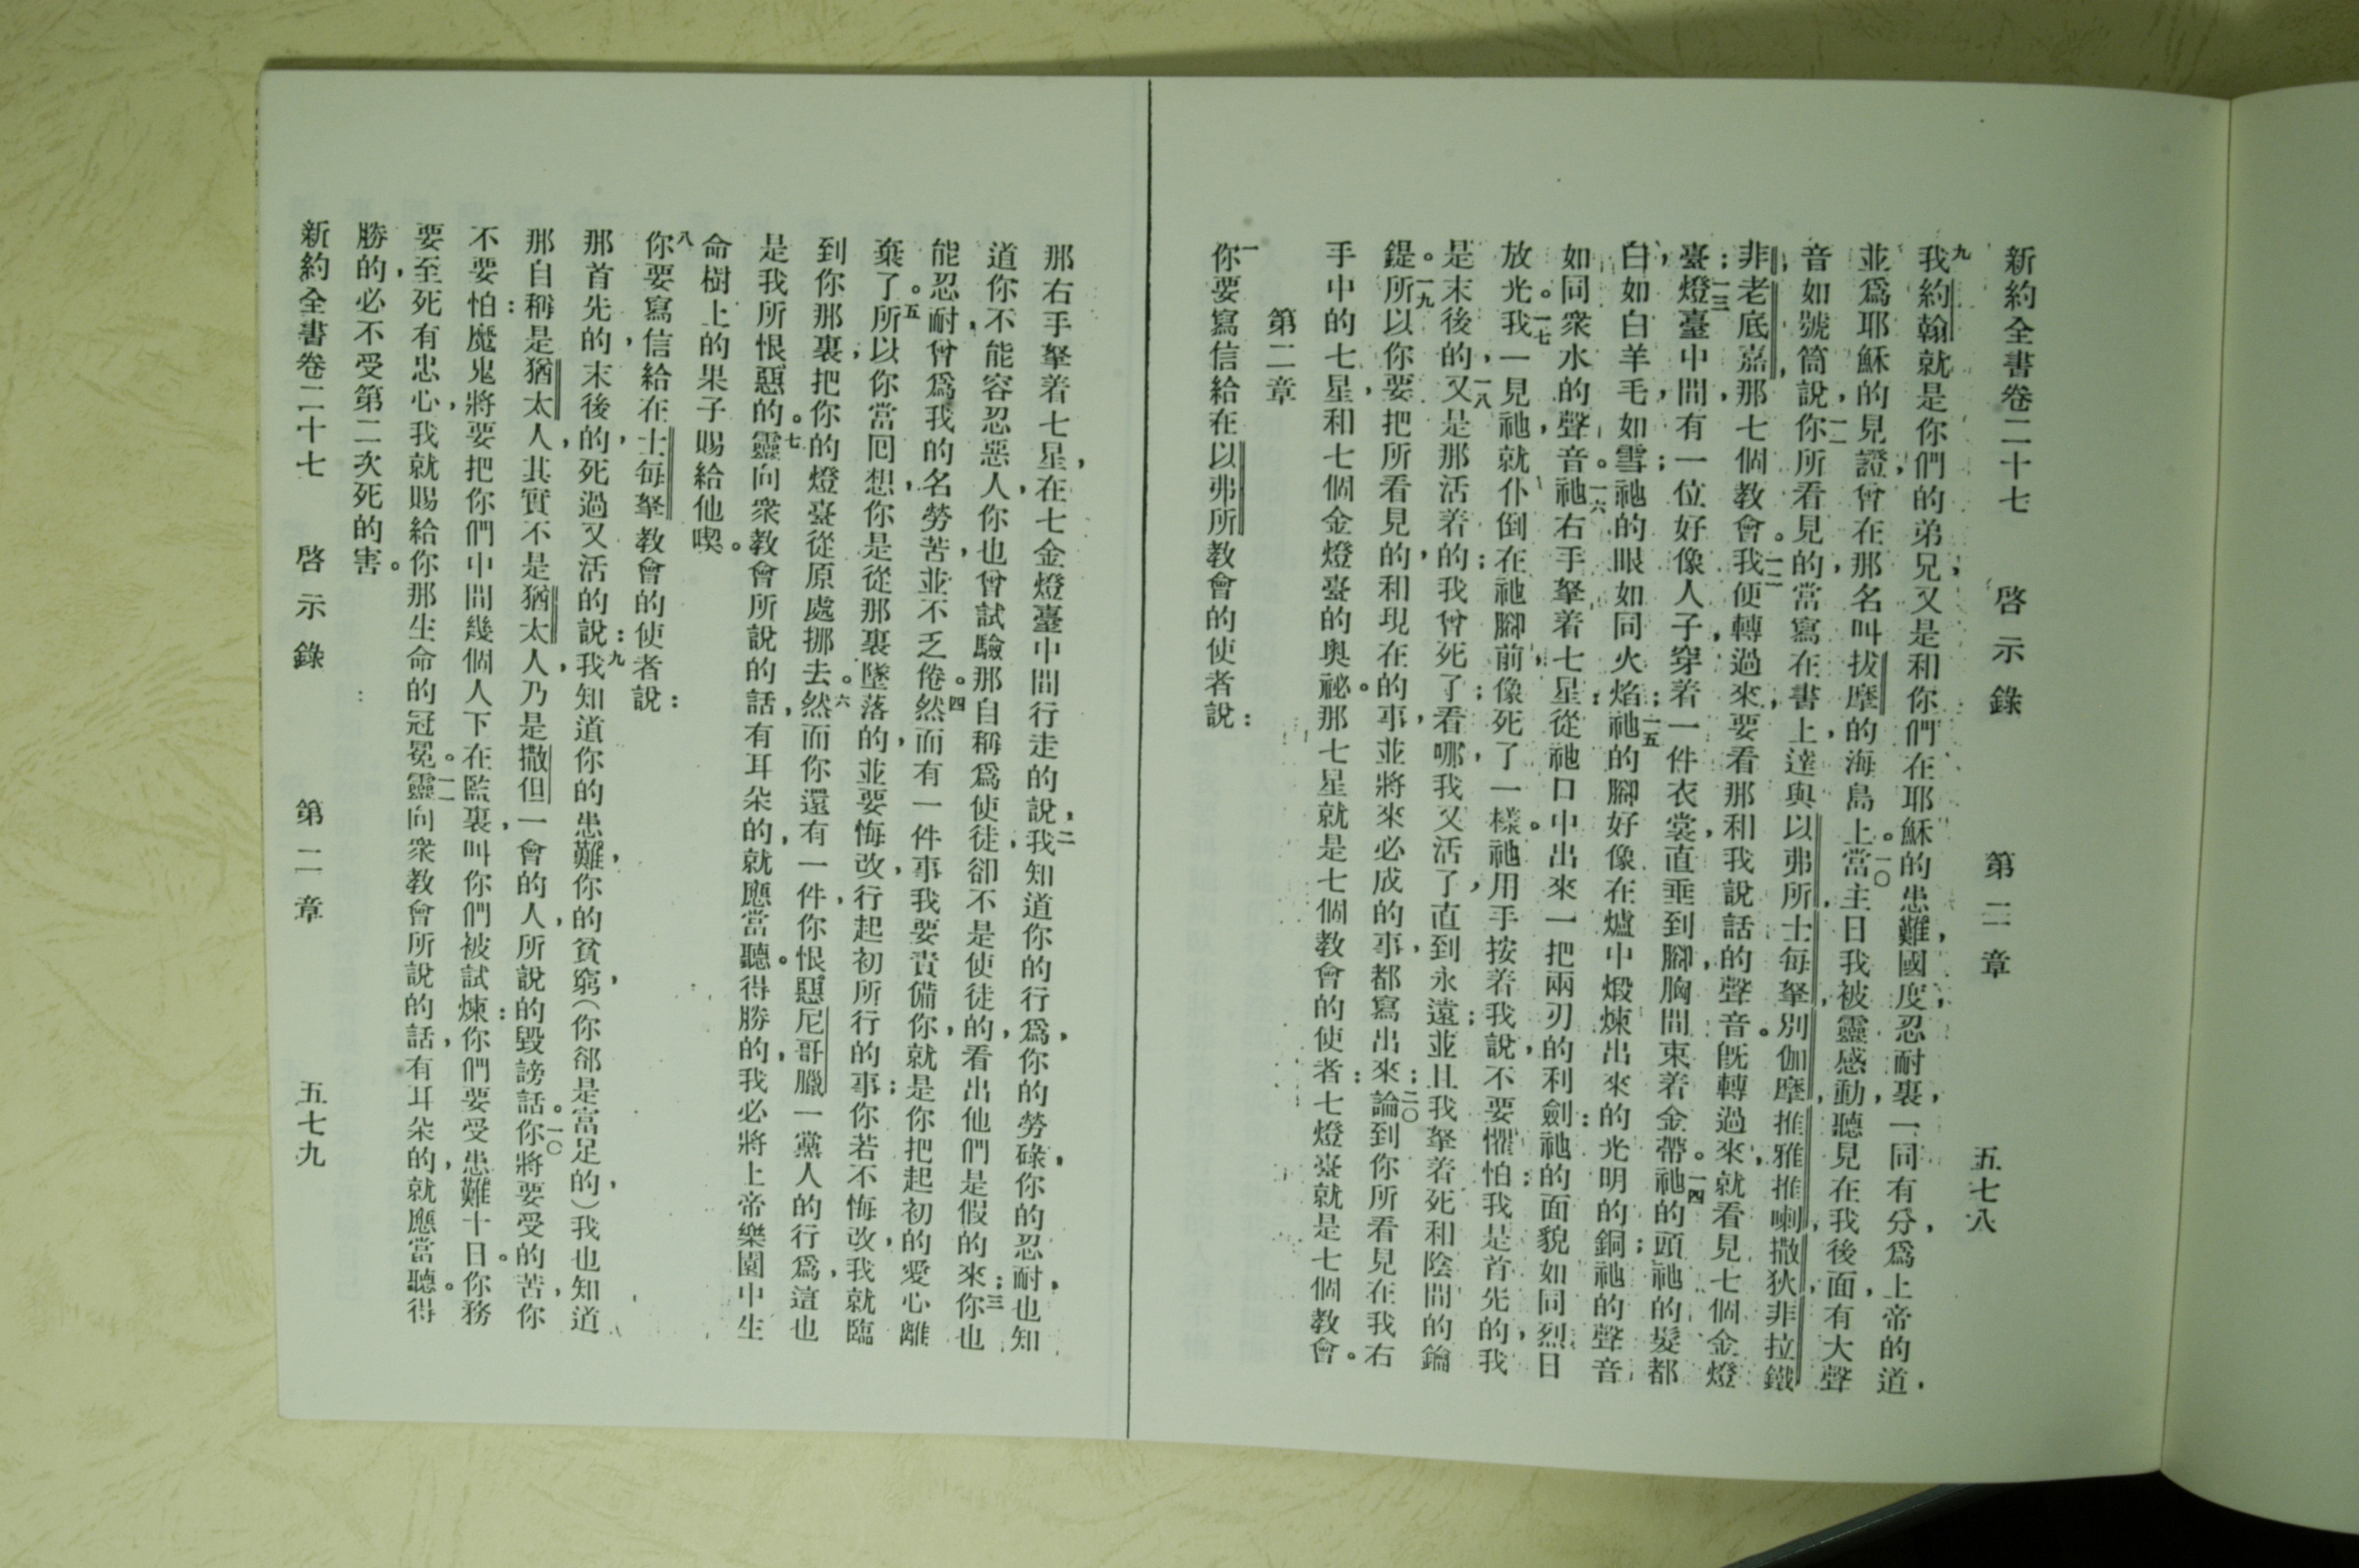 新約全書卷二十七 啓示錄 第二章 五七八
九我約翰就是你們的弟兄,又是和你們在耶穌的患難,國度,忍耐裏,一同有分,爲上帝的道,
並爲耶穌的見證,曾在那名叫拔摩的海島上。一〇當主日我被靈感動,聽見在我後面,有大聲
音如號筒說,一一你所看見的,當寫在書上,達與以弗所,士每拏,別伽摩,推雅推喇,撒狄,非拉鐵
非,老底嘉,那七個教會。一二我便轉過來,要看那和我說話的聲音。旣轉過來,就看見七個金燈
臺;一三燈臺中間,有一位好像人子,穿着一件衣裳,直垂到腳,胸間束着金帶。一四祂的頭祂的髮都
白,如白羊毛,如雪;祂的眼如同火焰;一五祂的腳好像在爐中煅煉出來的光明的銅;祂的聲音
如同衆水的聲音。一六祂右手拏着七星;從祂口中出來一把兩刃的利劍:祂的面貌如同烈日
放光。一七我一見祂,就仆倒在祂腳前,像死了一樣。祂用手按着我說,不要懼怕:我是首先的,我
是末後的,一八又是那活着的;我曾死了;看哪,我又活了,直到永遠;並且我拏着死和陰間的鑰
鍉。一九所以你要把所看見的,和現在的事,並將來必成的事,都寫出來;二〇論到你所看見在我右
手中的七星,和七個金燈臺的奧祕。那七星就是七個教會的使者:七燈臺就是七個教會。
第二章
一你要寫信給在以弗所教會的使者說:
那右手拏着七星,在七金燈臺中間行走的,說,二我知道你的行爲,你的勞碌,你的忍耐,也知
道你不能容忍惡人,你也曾試驗那自稱爲使徒,卻不是使徒的,看出他們是假的來;三你也
能忍耐,曾爲我的名勞苦,並不乏倦。四然而有一件事我要責備你,就是你把起初的愛心離
棄了。五所以你當回想,你是從那裏墜落的,並要悔改,行起初所行的事;你若不悔改,我就臨
到你那裏,把你的燈臺從原處挪去。六然而你還有一件,你恨惡尼哥臘一黨人的行爲,這也
是我所恨惡的。七靈向衆教會所說的話,有耳朵的,就應當聽。得勝的,我必將上帝樂園中生
命樹上的果子賜給他喫。
八你要寫信給在士每拏教會的使者說:
那首先的,末後的,死過又活的,說:九我知道你的患難,你的貧窮,(你卻是富足的,)我也知道
那自稱是猶太人,其實不是猶太人,乃是撒但一會的人,所說的毀謗話。一〇你將要受的苦,你
不要怕:魔鬼將要把你們中間幾個人下在監裏,叫你們被試煉:你們要受患難十日。你務
要至死有忠心,我就賜給你那生命的冠冕。一一靈向衆教會所說的話,有耳朵的,就應當聽。得
勝的,必不受第二次死的害。
新約全書卷二十七 啓示錄 第二章 五七九